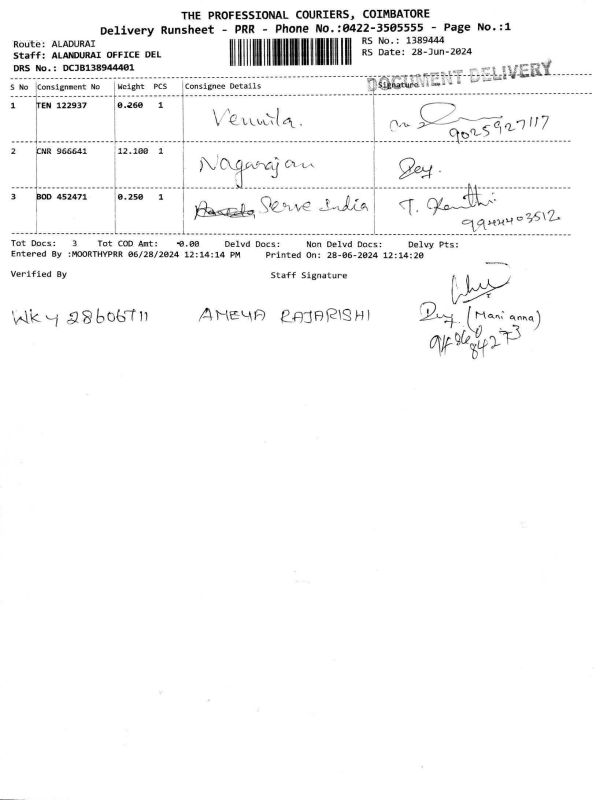 THE PROFESSIONAL COURIERS, COIMBATORE
Delivery Runsheet - PRR - Phone No.:0422-3505555 - Page No.:1
Route: ALADURAI
RS No.: 1389444
Staff: ALANDURAI OFFICE DEL
RS Date: 28-Jun-2024
DRS No.: DCJB138944401
DOCUMENT DELIVERY
S No Consignment No Weight PCS Consignee Details Signature
1 TEN 122937 0.260 1 Vennila.
9025927117
2 CNR 966641 12.100 1 Nagarajan
3 BOD 452471 0.250 1 Serve India T. Kanthi
9944403512
Tot Docs: 3 Tot COD Amt: 0.00 Delvd Docs: Non Delvd Docs: Delvy Pts:
Entered By :MOORTHYPRR 06/28/2024 12:14:14 PM Printed On: 28-06-2024 12:14:20
Verified By Staff Signature
AMEYA RAJARISHI
(Mani anna)
84273